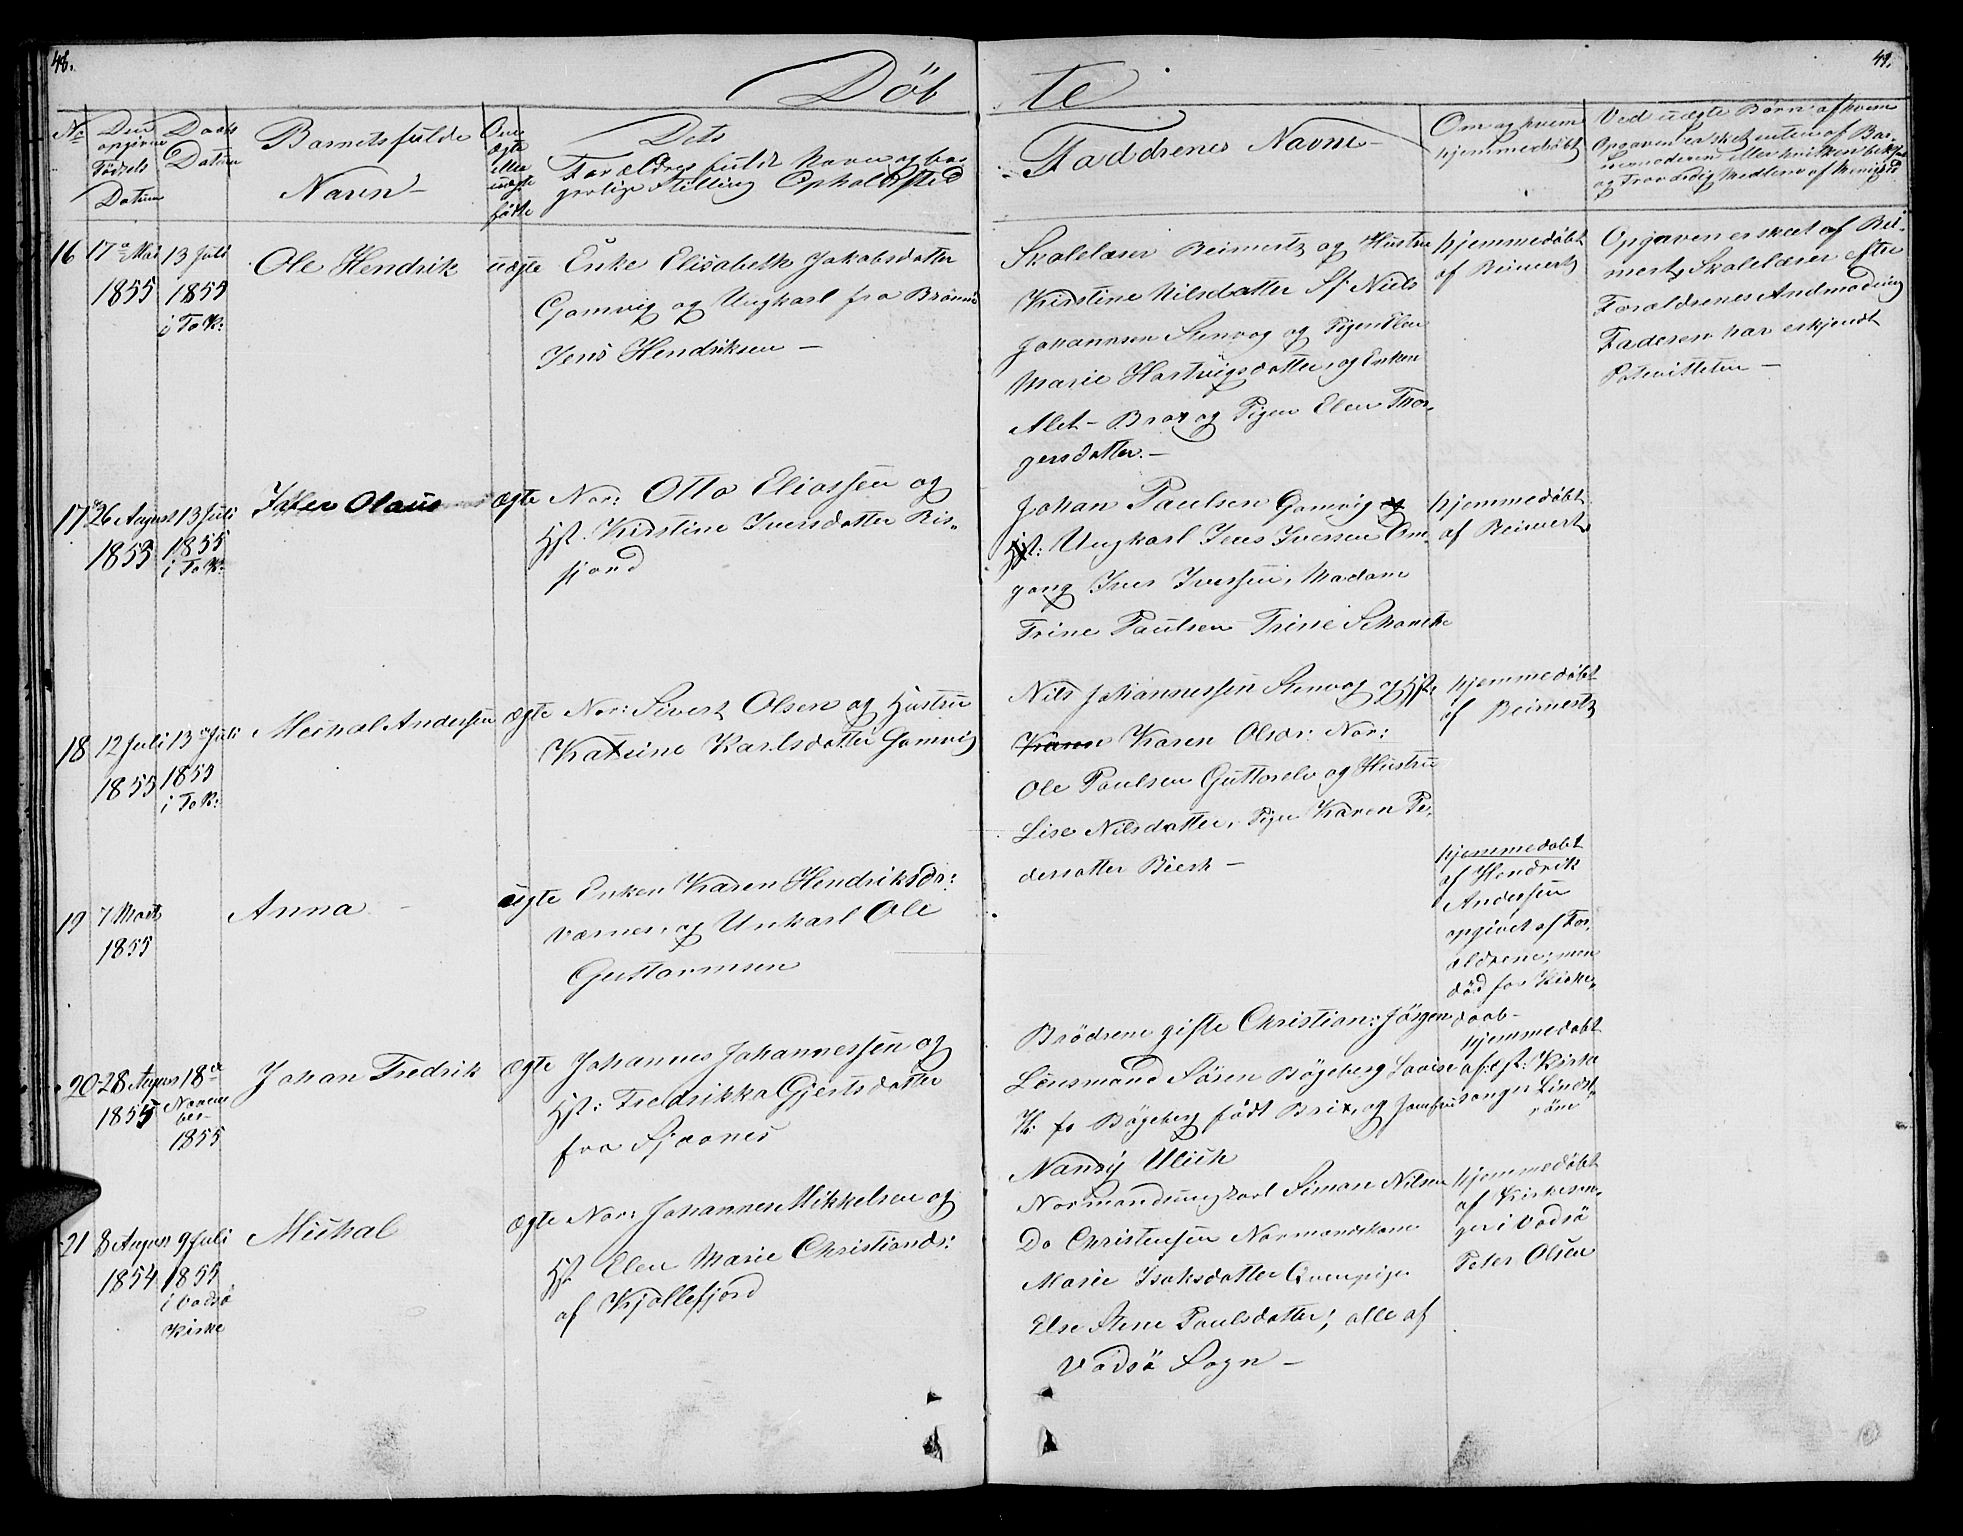 48.
49.
Döb
te
No
Den opgivne Fødsels Datum
Daabs Datum
Barnets fulde
Navn
Om ægte eller uægte fødte
Dets
Forældres fulde Navn og bor-
gerlige Stilling Opholdssted
Faddrenes Navne
Om og hvem
hjemmedöbt
Ved uægte Börn: af hvem
Opgaven er skeet enten af Bar-
nemoderen eller
og Troværdig
16
17de Mai
1855
13 Juli
1855
i Ta K:
Ole Hendrik
uægte
Enke Elisabeth Jakobsdatter
Gamvig og Ungkarl fra
Jens Hendriksen —
Skolelærer Beimertz og Hustru
Kirstine Nilsdatter Sf. Niels
Johannsen Stenvog og Pigen Elen
Marie Hartvigsdatter, og Enken
Alet - Brox og Pigen Elen Thor-
gersdatter. —
hjemmedöbt
af Beimertz
Opgaven er skeet af Bei-
mertz, Skolelærer efter
Forældrenes Andmodning
Faderen har erkjendt
—
17
26 August
1853
13 Juli
1855
i Ta K:
Olaus
ægte
Nor: Otto Eliassen og
Hst. Kirstine Iversdatter Ris-
fjord
Johan Paulsen Gamvig og
Hst: Ungkarl Jens Iversen Om-
gang Iver Iversen, Madam
Trine Paulsen Trine Schanche
hjemmedöbt
af Beimertz
18
12 Juli
1855
13 Juli
1855
i Ta K:
Michal Andersen
ægte
Nor: Sivert Olsen og Hustru
Katrine Karlsdatter Gamvig
Nils Johannessen Stenvog og Hst.
Karen Karen Olsdr. Nor:
Ole Paulsen Guttorelv og Hustru
Lise Nilsdatter, Pige Karen Pe-
dersdatter —
hjemmedöbt
af Beimertz
19
7 Marts
1855
Anna
uægte
Enken Karen Hendriksdr:
værnes, og Unkarl Ole
Guttormsen
hjemmedöbt
af Hendrik
Andersen
opgivet af For-
ældrene; men
död for Kirke-
daab-
20
28 August
1855
18de
Novem
ber
1855
Johan Fredrik
ægte
Johannes Johannessen og
Hst: Fredrikka Gjertsdatter
fra Sjaanes
Brödrene gifte Christian: Jörgen
Lensmand Sören Bögeberg Lovise
K: fr Bögeberg födt Brix, og Jomfru
Nansÿ Ulich
hjemmedöbt
af: Kirke
sanger Lindst-
röm
21
8 August
1854
9 Juli
1855
i Vadsö
Kirke
Michal
ægte
Nor: Johannes Mikkelsen og
Hst Elen Marie Christiansdr:
af Kjøllefjord
Normandsungkarl Simon Nilsen
Do Christensen Normandskone
Marie Isaksdatter Qvenpige
Else Stene Paulsdatter; alle af
Vadsö Sogn —
hjemmedöbt
af Kirkesan-
ger i Vadsö
Peter Olsen